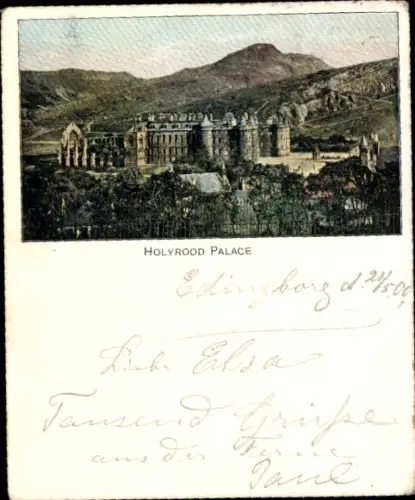 HOLYROOD PALACE
Edingborg d. 21/5.00.
Liebe Elsa
Tausend Grüße
aus der Ferne
Paul.